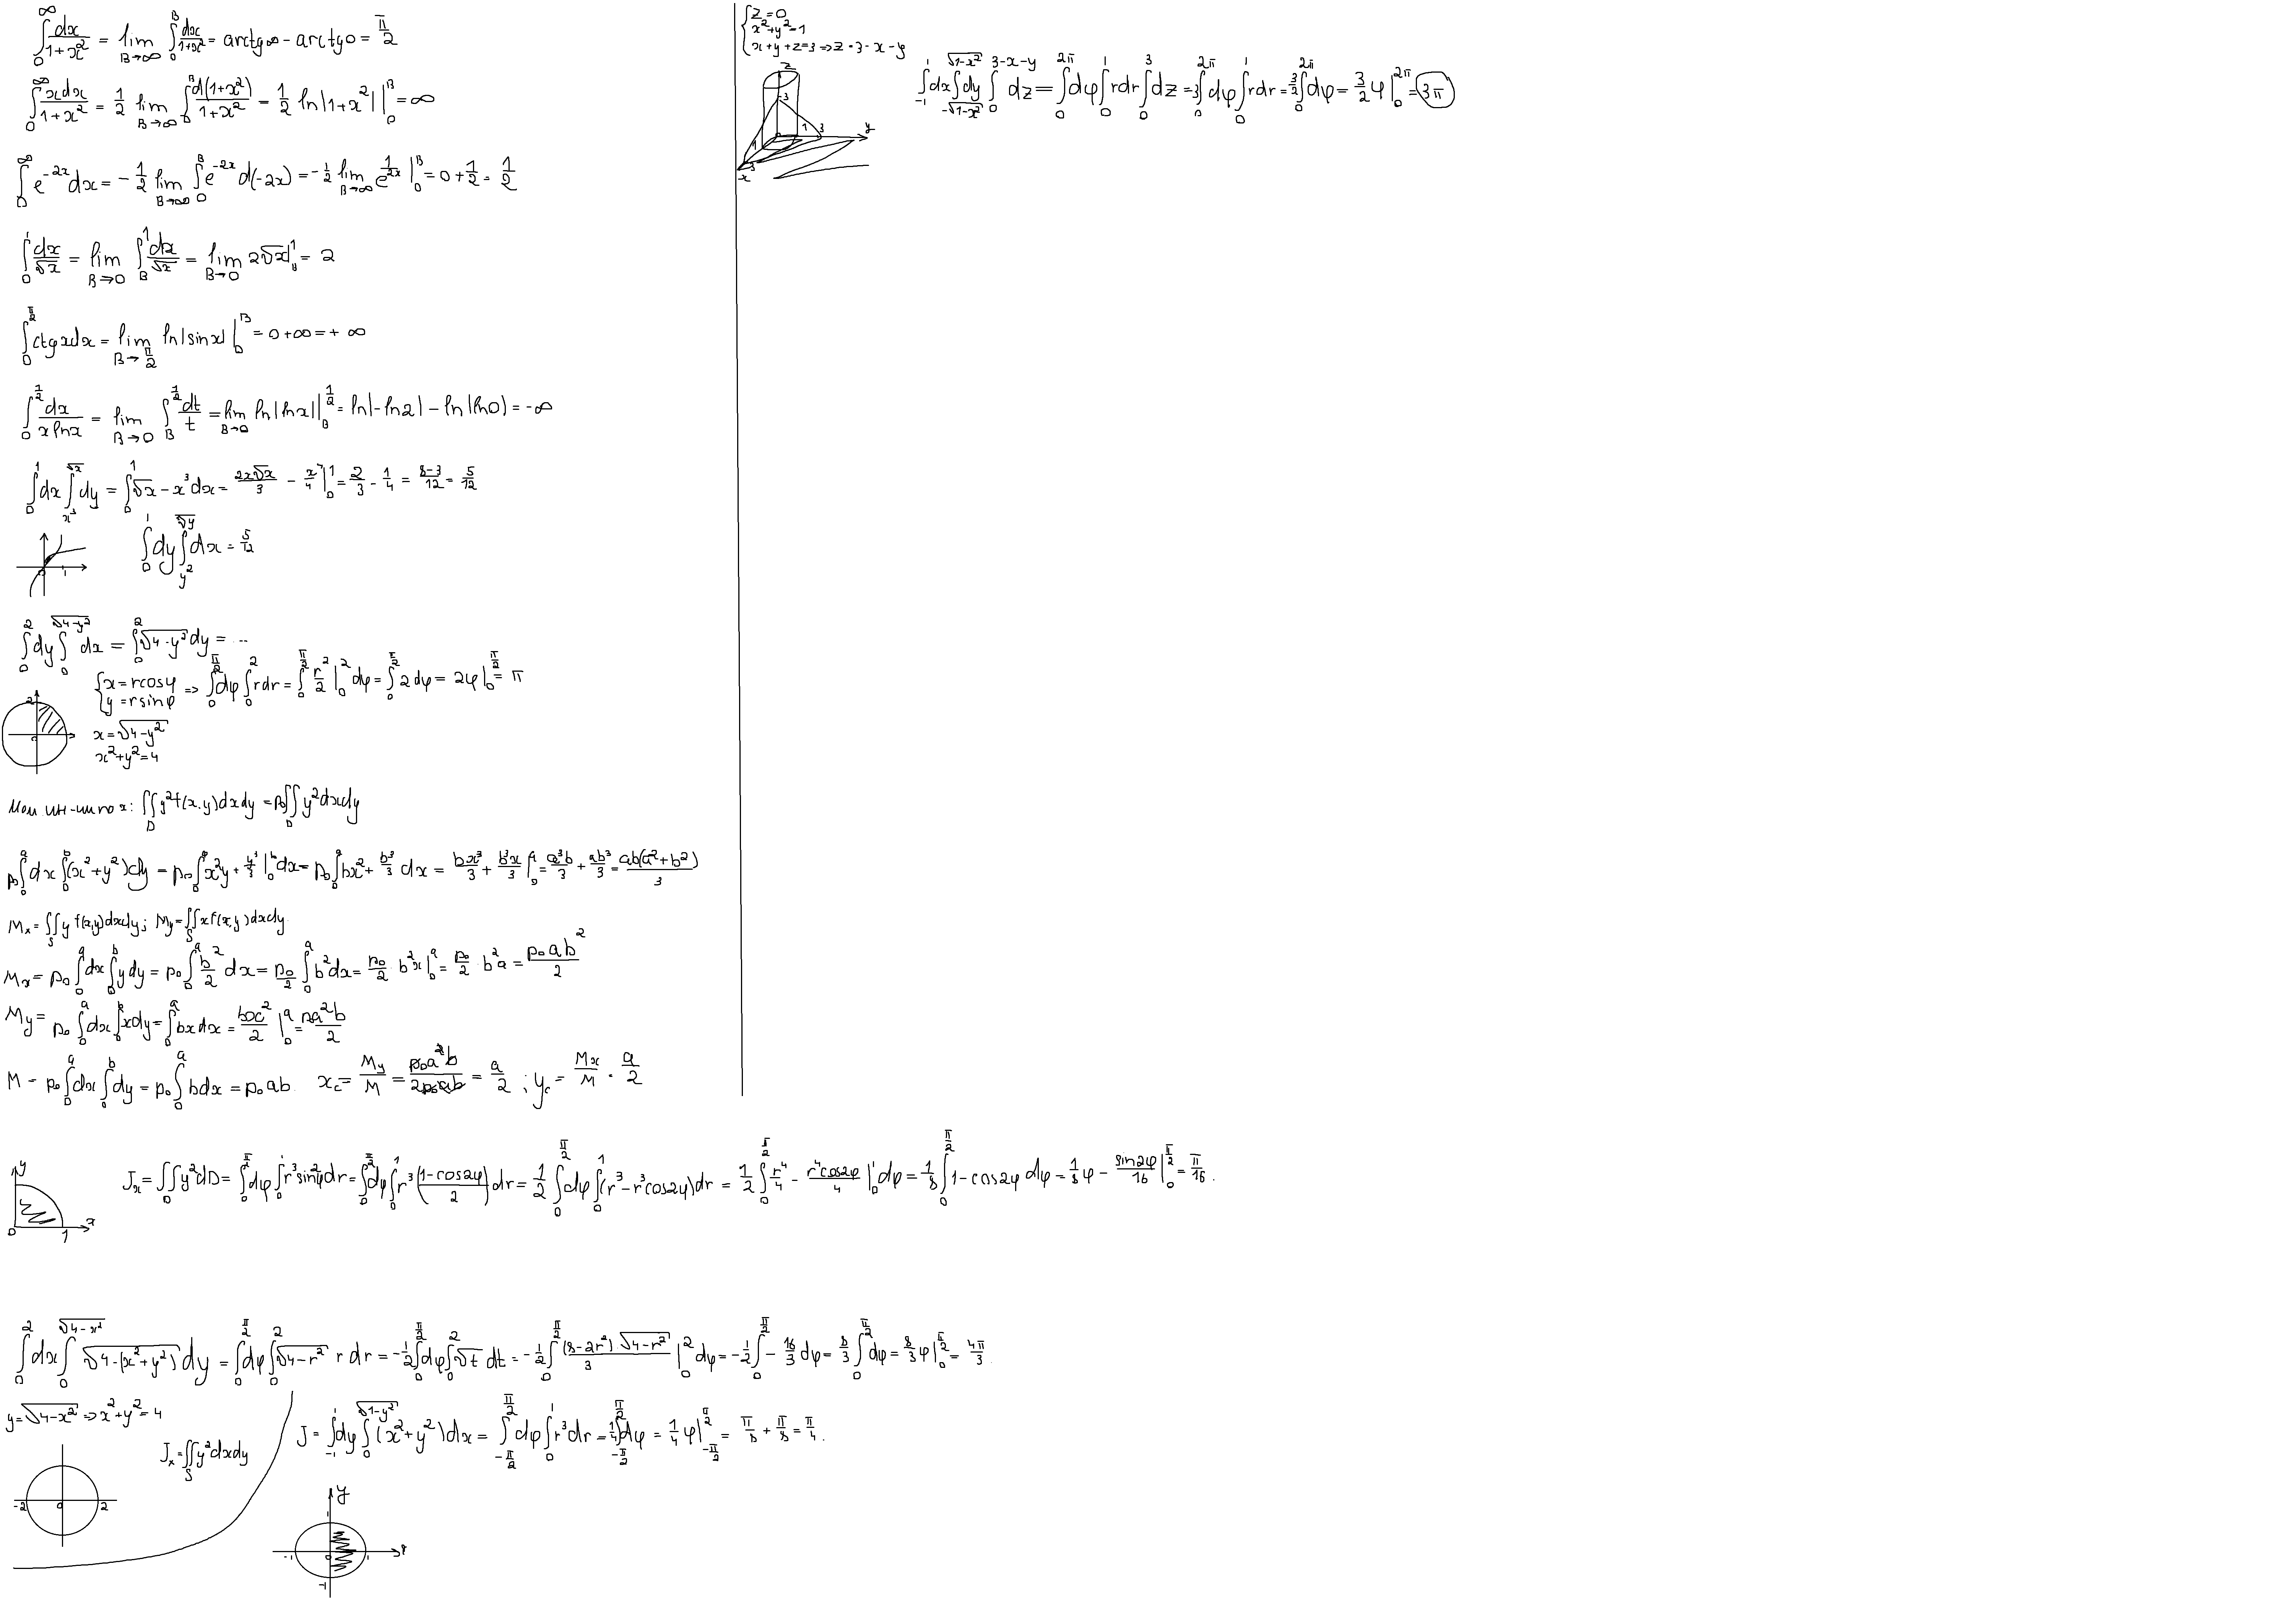 ∫₀^∞ dx/(1+x²) = lim_{B→∞} ∫₀^B dx/(1+x²) = arctg∞ - arctg0 = π/2
∫₀^∞ xdx/(1+x²) = 1/2 lim_{B→∞} ∫₀^B d(1+x²)/(1+x²) = 1/2 ln|1+x²| |₀^B = ∞
∫₀^∞ e^(-2x)dx = -1/2 lim_{B→∞} ∫₀^B e^(-2x) d(-2x) = -1/2 lim_{B→∞} 1/e^(2x) |₀^B = 0 + 1/2 = 1/2
∫₀^1 dx/√x = lim_{B→0} ∫_B^1 dx/√x = lim_{B→0} 2√x |_B^1 = 2
∫₀^(π/2) ctgxdx = lim_{B→π/2} ln|sinx| |₀^B = 0+∞ = +∞
∫₀^(1/2) dx/(x lnx) = lim_{B→0} ∫_B^(1/2) dt/t = lim_{B→0} ln|lnx| |_B^(1/2) = ln|-ln2| - ln|ln0| = -∞
∫₀^1 dx ∫_(x³)^(√x) dy = ∫₀^1 √x - x³dx = 2x√x/3 - x⁴/4 |₀^1 = 2/3 - 1/4 = (8-3)/12 = 5/12
∫₀^1 dy ∫_(y²)^(∛y) dx = 5/12
0 1
∫₀^2 dy ∫₀^(√(4-y²)) dx = ∫₀^2 √(4-y²) dy = ...
{x = rcosφ
{y = rsinφ => ∫₀^(π/2) dφ ∫₀^2 rdr = ∫₀^(π/2) r²/2 |₀^2 dφ = ∫₀^(π/2) 2dφ = 2φ |₀^(π/2) = π
2 0
x = √(4-y²)
x²+y²=4
Мом ин-ции по x: ∬_D y²f(x,y)dxdy = p₀∬_D y²dxdy
p₀∫₀^a dx ∫₀^b (x²+y²)dy = p₀∫₀^a x²y + y³/3 |₀^b dx = p₀∫₀^a bx² + b³/3 dx = bx³/3 + b³x/3 |₀^a = a³b/3 + ab³/3 = ab(a²+b²)/3
Mx = ∬_S y f(x,y)dxdy; My = ∬_S x f(x,y)dxdy
Mx = p₀ ∫₀^a dx ∫₀^b ydy = p₀ ∫₀^a b²/2 dx = p₀/2 ∫₀^a b²dx = p₀/2 · b²x |₀^a = p₀/2 · b²a = p₀ab²/2
My = p₀ ∫₀^a dx ∫₀^b xdy = ∫₀^a bxdx = bx²/2 |₀^a = p₀a²b/2
M = p₀ ∫₀^a dx ∫₀^b dy = p₀ ∫₀^a bdx = p₀ab. x_c = My/M = p₀a²b/2p₀ab = a/2 ; y_c = Mx/M = a/2
y 0 1 x
Jx = ∬_D y²dD = ∫₀^(π/2) dφ ∫₀^1 r³sin²φdr = ∫₀^(π/2) dφ ∫₀^1 r³((1-cos2φ)/2)dr = 1/2 ∫₀^(π/2) dφ ∫₀^1 (r³-r³cos2φ)dr = 1/2 ∫₀^(π/2) r⁴/4 - r⁴cos2φ/4 |₀^1 dφ = 1/8 ∫₀^(π/2) 1-cos2φ dφ = 1/8 φ - sin2φ/16 |₀^(π/2) = π/16.
∫₀^2 dx ∫₀^(√(4-x²)) √(4-(x²+y²)) dy = ∫₀^(π/2) dφ ∫₀^2 √(4-r²) r dr = -1/2 ∫₀^(π/2) dφ ∫₀^2 √t dt = -1/2 ∫₀^(π/2) (8-2r²)√(4-r²)/3 |₀^2 dφ = -1/2 ∫₀^(π/2) -16/3 dφ = 8/3 ∫₀^(π/2) dφ = 8/3 φ |₀^(π/2) = 4π/3.
y = √(4-x²) => x²+y²=4
Jx = ∬_S y²dxdy
-2 0 2
J = ∫_(-1)^1 dy ∫₀^(√(1-y²)) (x²+y²)dx = ∫_(-π/2)^(π/2) dφ ∫₀^1 r³dr = 1/4 ∫_(-π/2)^(π/2) dφ = 1/4 φ |_(-π/2)^(π/2) = π/8 + π/8 = π/4.
y
1
-1 0 1
-1
{z=0
{x²+y²=1
{x+y+z=3 => z=3-x-y
∫_(-1)^1 dx ∫_(-√(1-x²))^(√(1-x²)) dy ∫₀^(3-x-y) dz = ∫₀^(2π) dφ ∫₀^1 rdr ∫₀^3 dz = 3∫₀^(2π) dφ ∫₀^1 rdr = 3/2 ∫₀^(2π) dφ = 3/2 φ |₀^(2π) = 3π
z
3
1 3 y
1
3
x